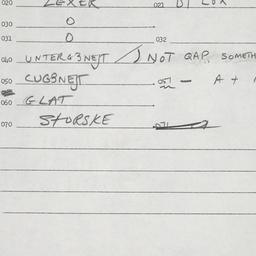 020 LEXER 021 DI LUX
030 0
031 0 032
040 UNTERG3NEJT / ) NOT GAP, SOMETH
050 CUG3NEJT 051 – A +
060 GLAT
070 STORSKE 071